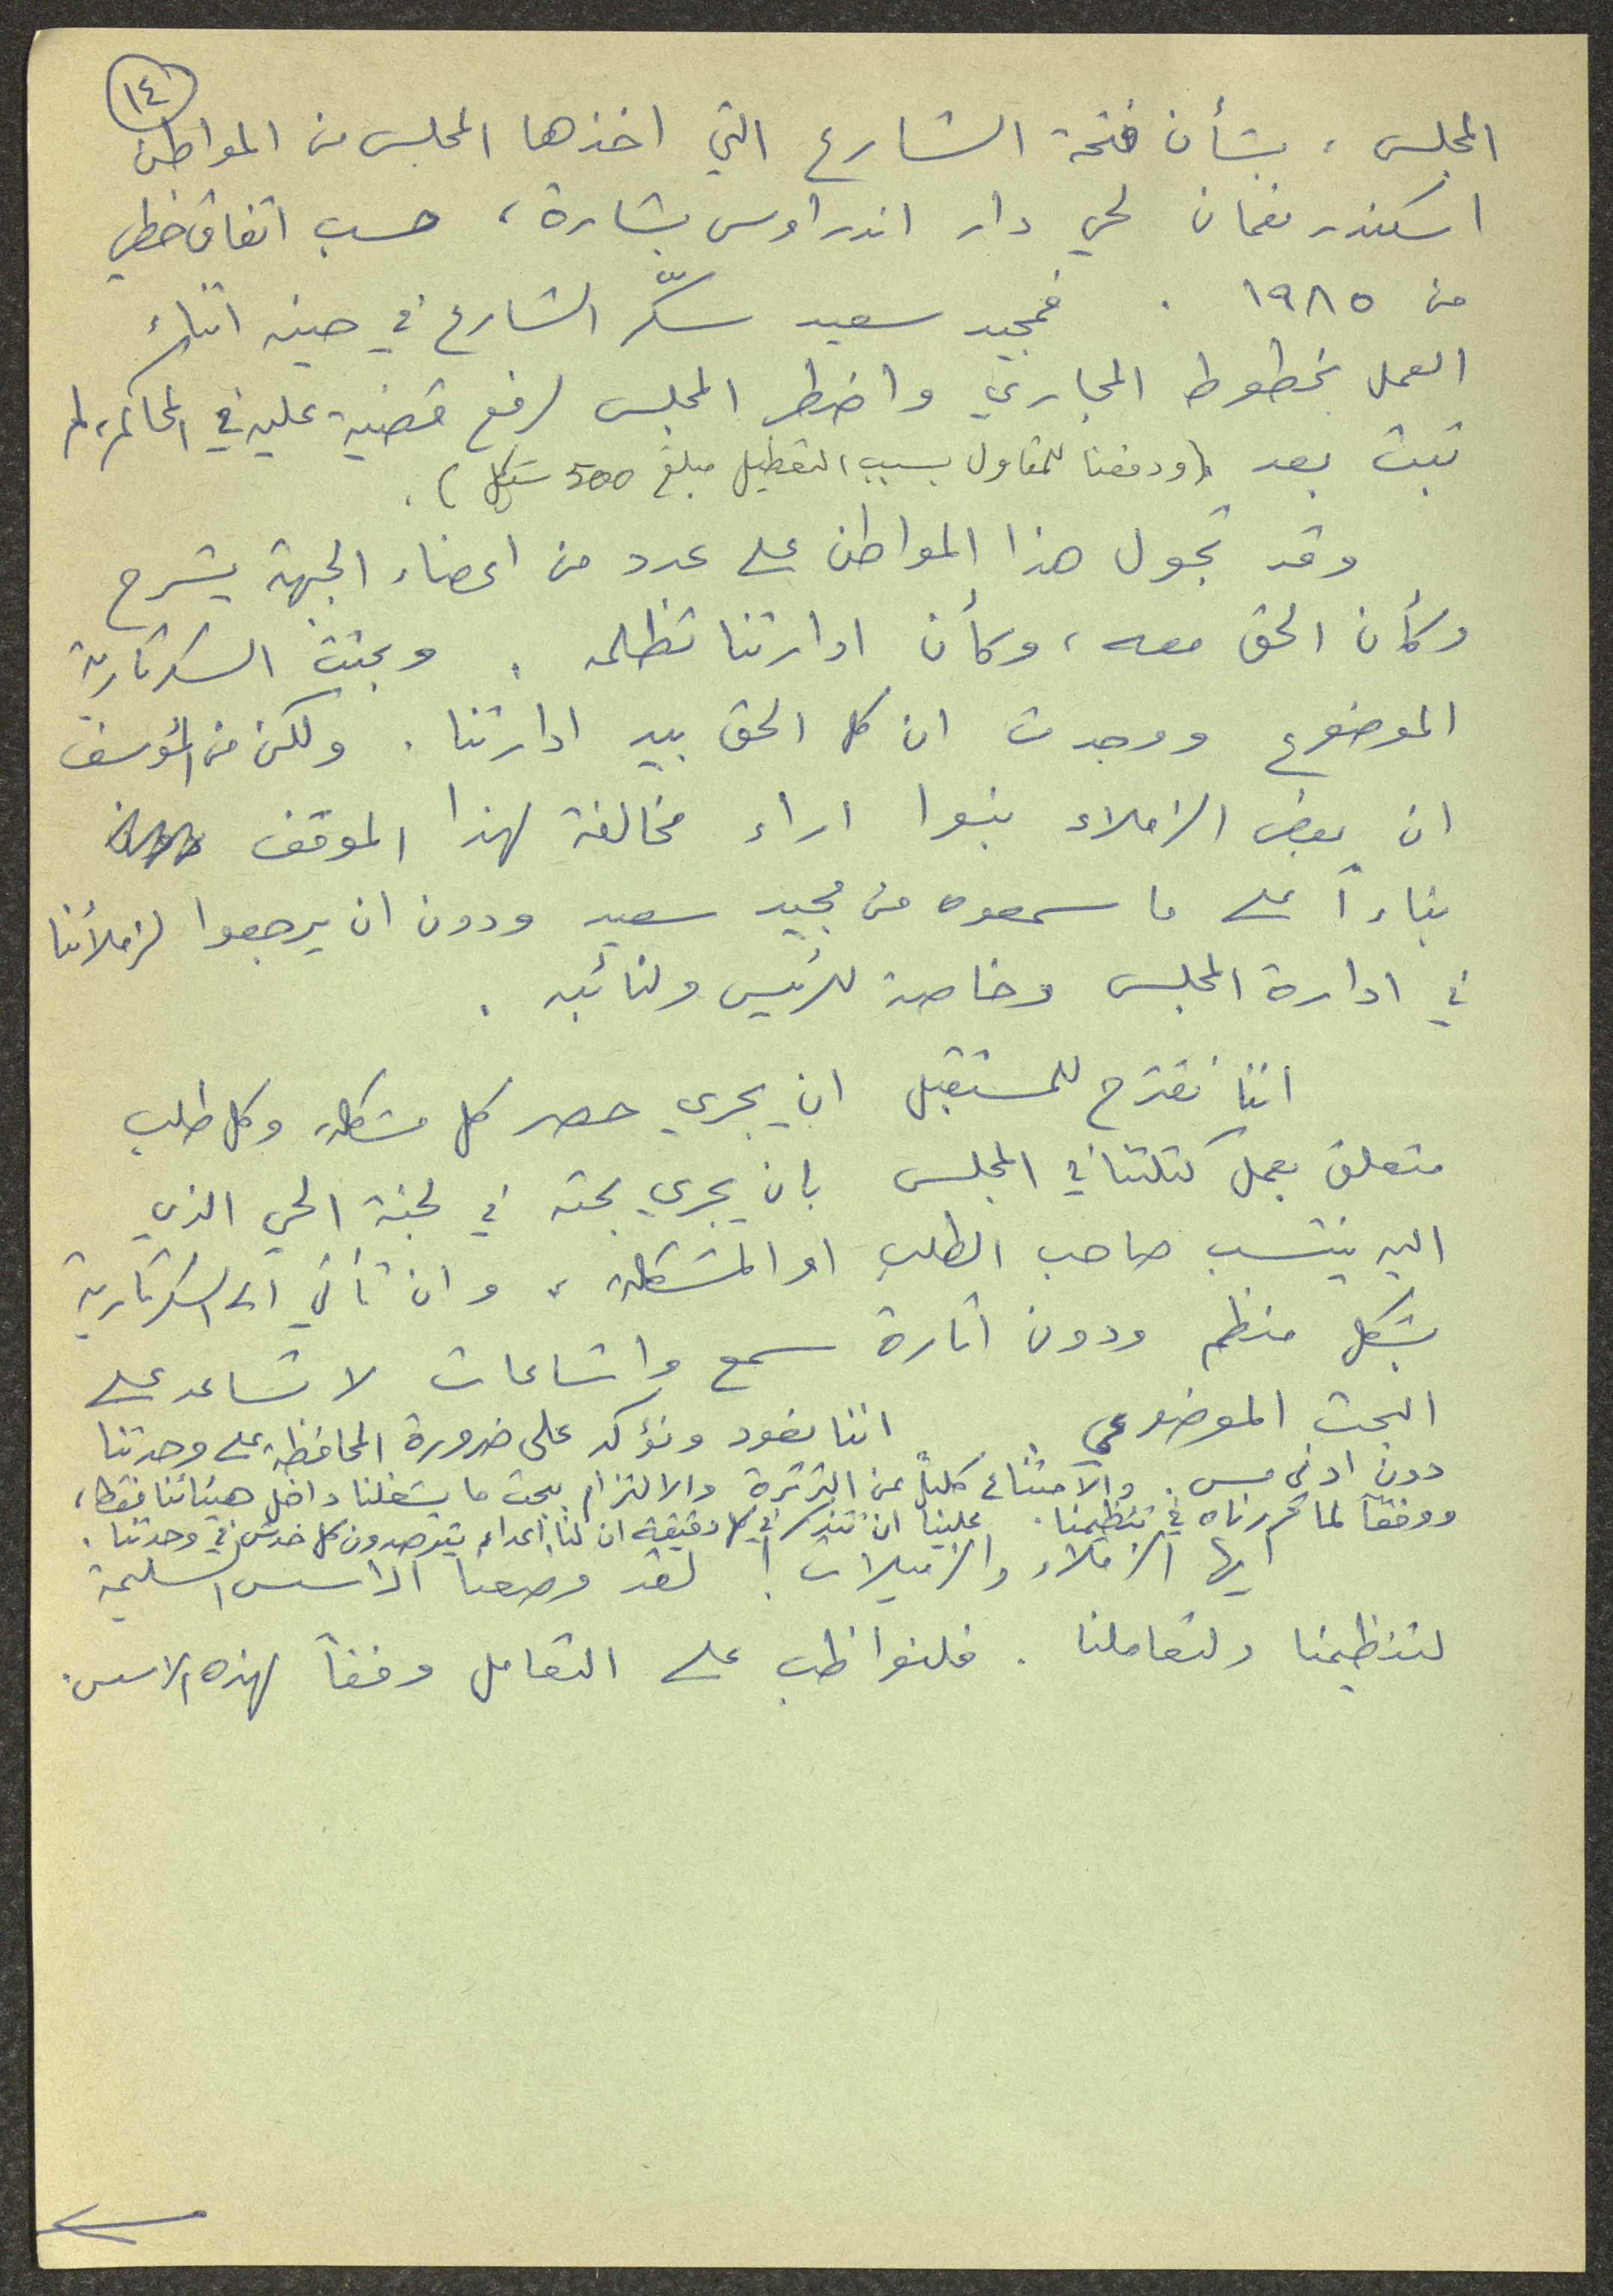 ١٤
المجلس، بشأن فتحة الشارع التي اخذها المجلس من المواطن
اسكندر نعمان لحي دار اندراوس بشارة، حسب اتفاق خطي
من ١٩٨٥ . فمجيد سعيد سكّر الشارع في حينه اثناء
العمل بخطوط المجاري واضطر المجلس لرفع قضية عليه في المحاكم، لم
تبت بعد (ودفعنا للمقاول بسبب التعطيل مبلغ 500 شيكل) .
وقد تجول هذا المواطن على عدد من اعضاء الجبهة يشرح
وكأن الحق معه، وكأن ادارتنا تظلمه . وبحثت السكرتارية
الموضوع ووجدت ان كل الحق بيد ادارتنا . ولكن من المؤسف
ان بعض الزملاء بنوا اراء مخالفة لهذا الموقف
بناءاً على ما سمعوه من مجيد سعيد ودون ان يرجعوا لزملائنا
في ادارة المجلس وخاصة للرئيس ولنائبه .
اننا نقترح للمستقبل ان يجري حصر كل مشكلة وكل طلب
متعلق بعمل كتلتنا في المجلس بان يجري بحثه في لجنة الحي الذي
اليه ينتسب صاحب الطلب او المشكلة، وان تأتي الى السكرتارية
بشكل منظم ودون اثارة سمع واشاعات لا تساعد على
البحث الموضوعي . اننا نعود ونؤكد على ضرورة المحافظة على وحدتنا
دون ادنى مس . والامتناع كلياً عن الثرثرة والالتزام ببحث ما يشغلنا داخل هيئاتنا فقط،
ووفقاً لما قررناه في تنظيمنا . علينا ان نتذكر في كل دقيقة ان لنا اعداء يترصدون كل خدش في وحدتنا .
ايها الزملاء والزميلات ! لقد وضعنا الاسس السليمة
لتنظيمنا ولتعاملنا . فلنواظب على التعامل وفقاً لهذه الاسس .